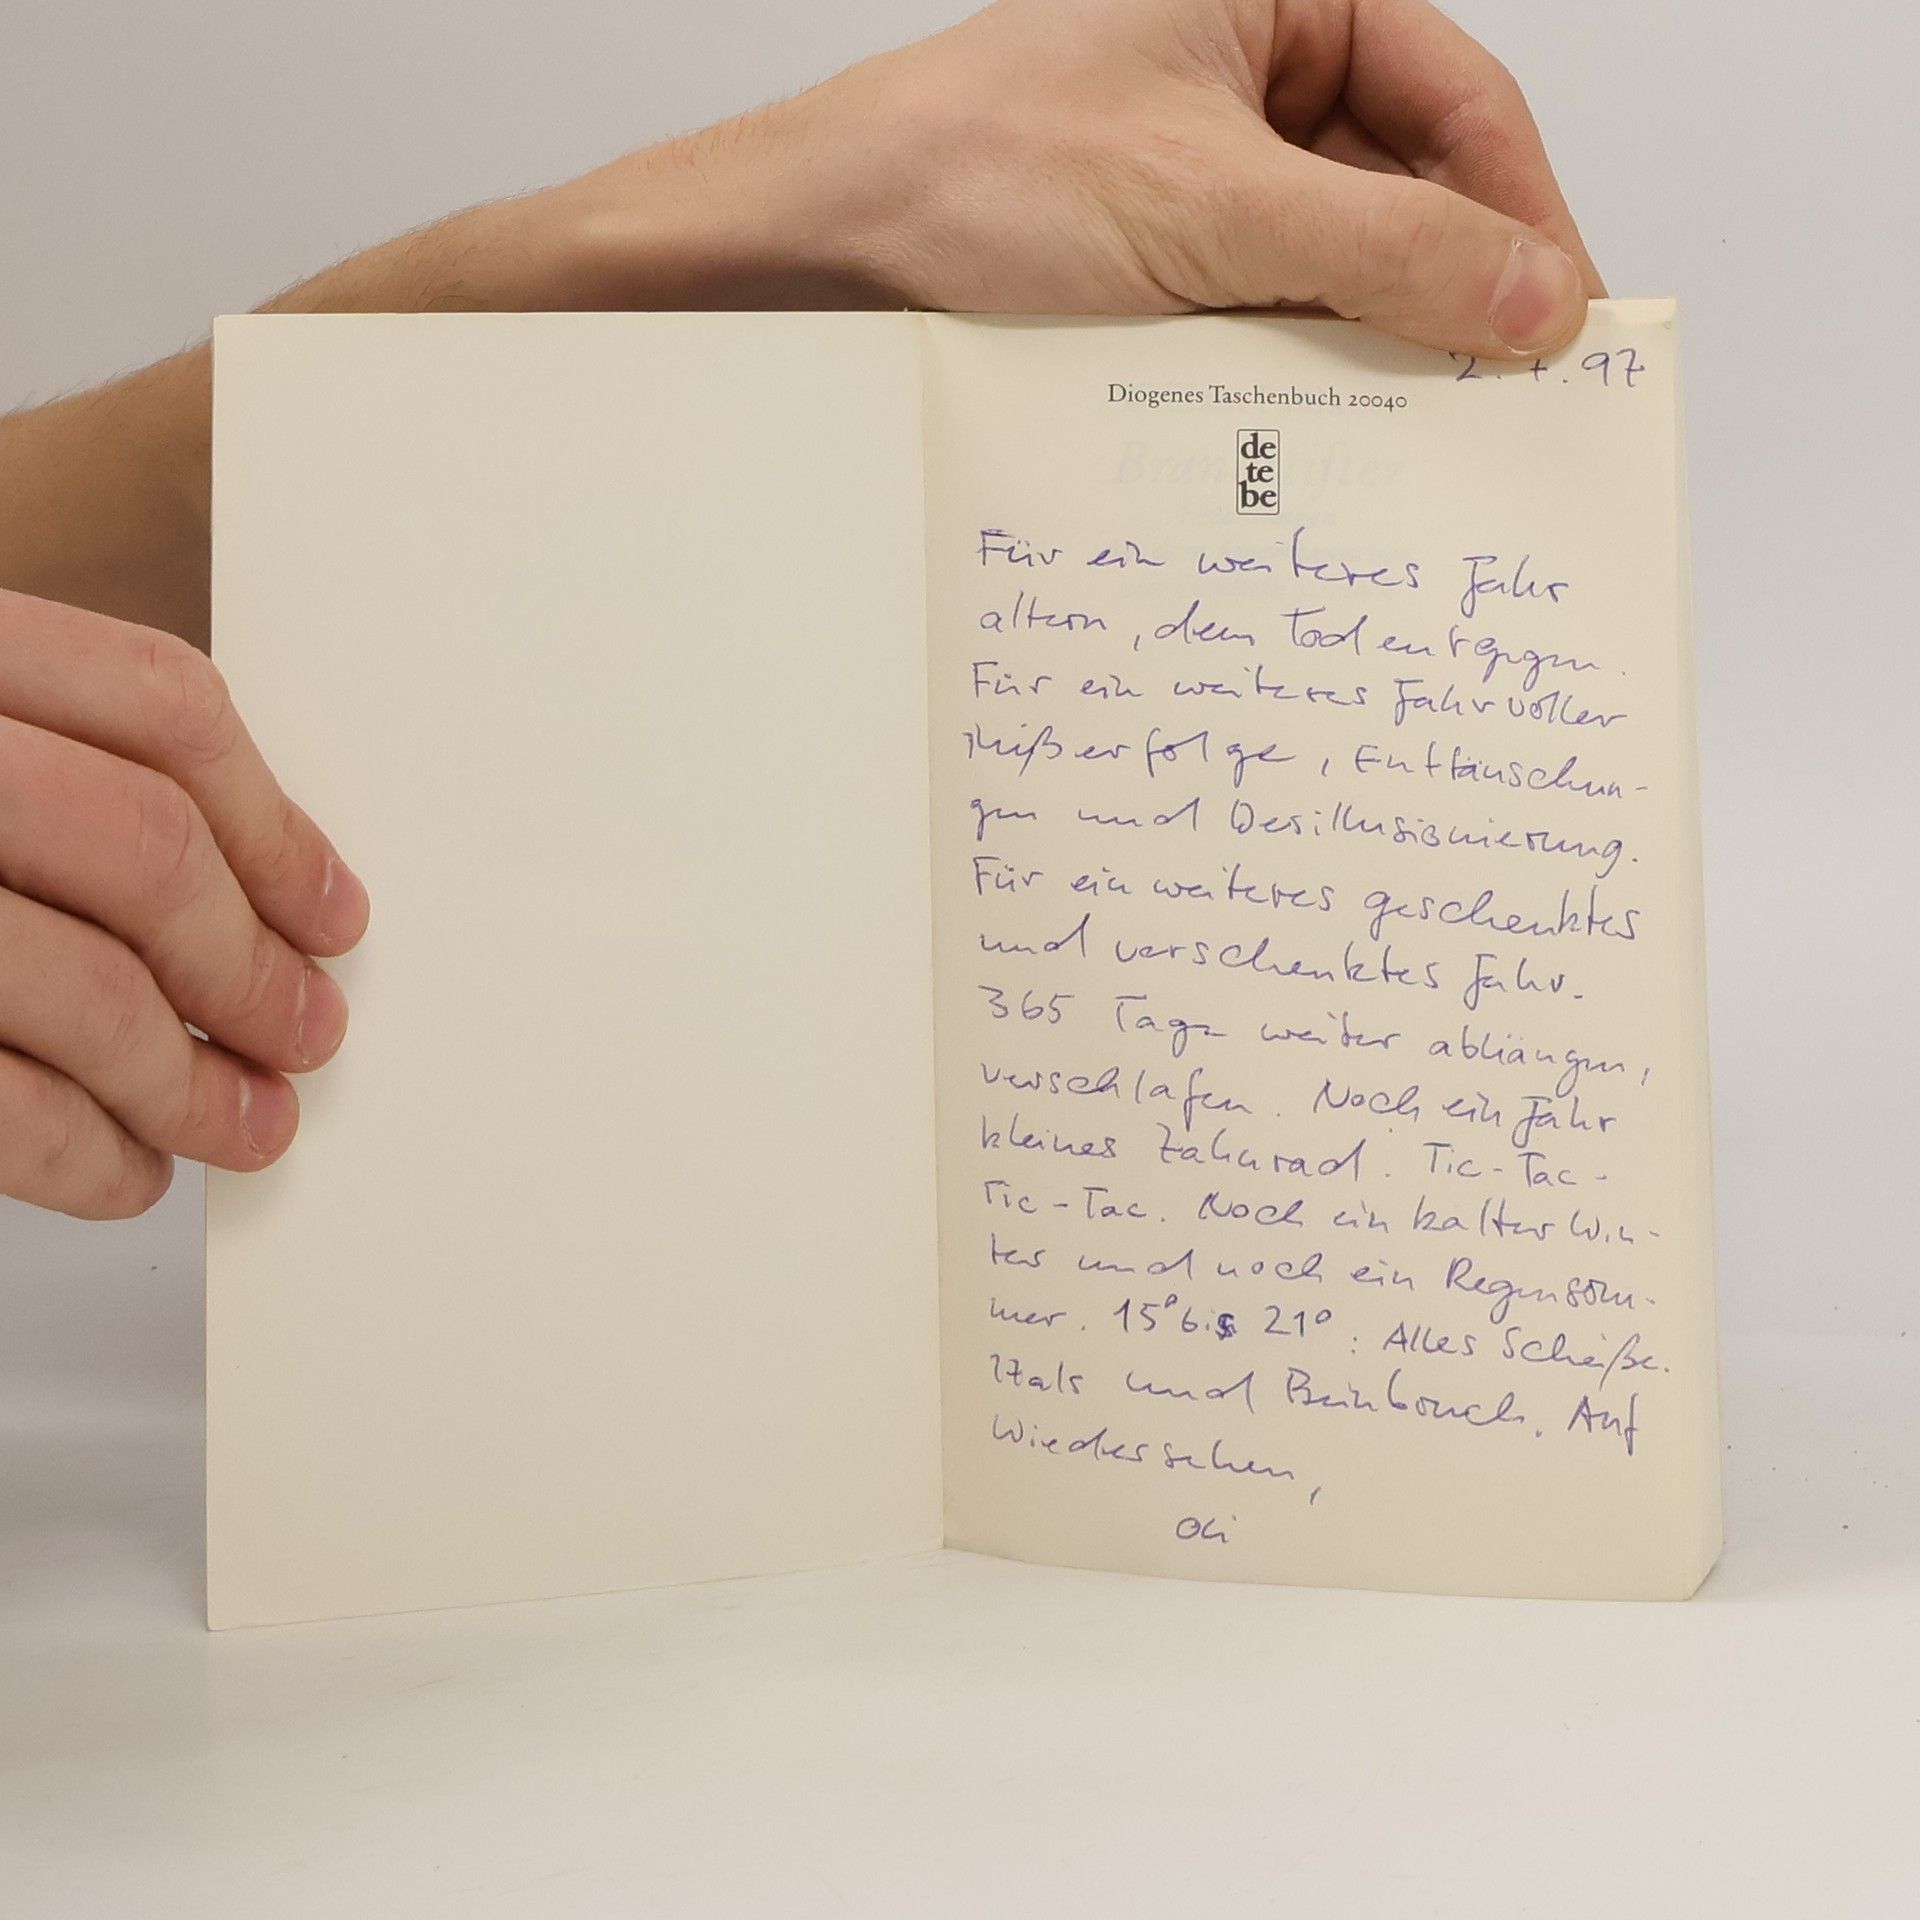 2.7.97
Diogenes Taschenbuch 20040
de
te
be
Für ein weiteres Jahr
altern, dem Tod entgegen.
Für ein weiteres Jahr voller
Mißerfolge, Enttäuschun-
gen und Desillusionierung.
Für ein weiteres geschenktes
und verschenktes Jahr.
365 Tage weiter abhängen,
verschlafen. Noch ein Jahr
kleines Zahnrad. Tic-Tac-
Tic-Tac. Noch ein kalter Win-
ter und noch ein Regensom-
mer. 15° bis 21°: Alles Scheiße.
Hals und Beinbruch. Auf
Wiedersehen,
Oli